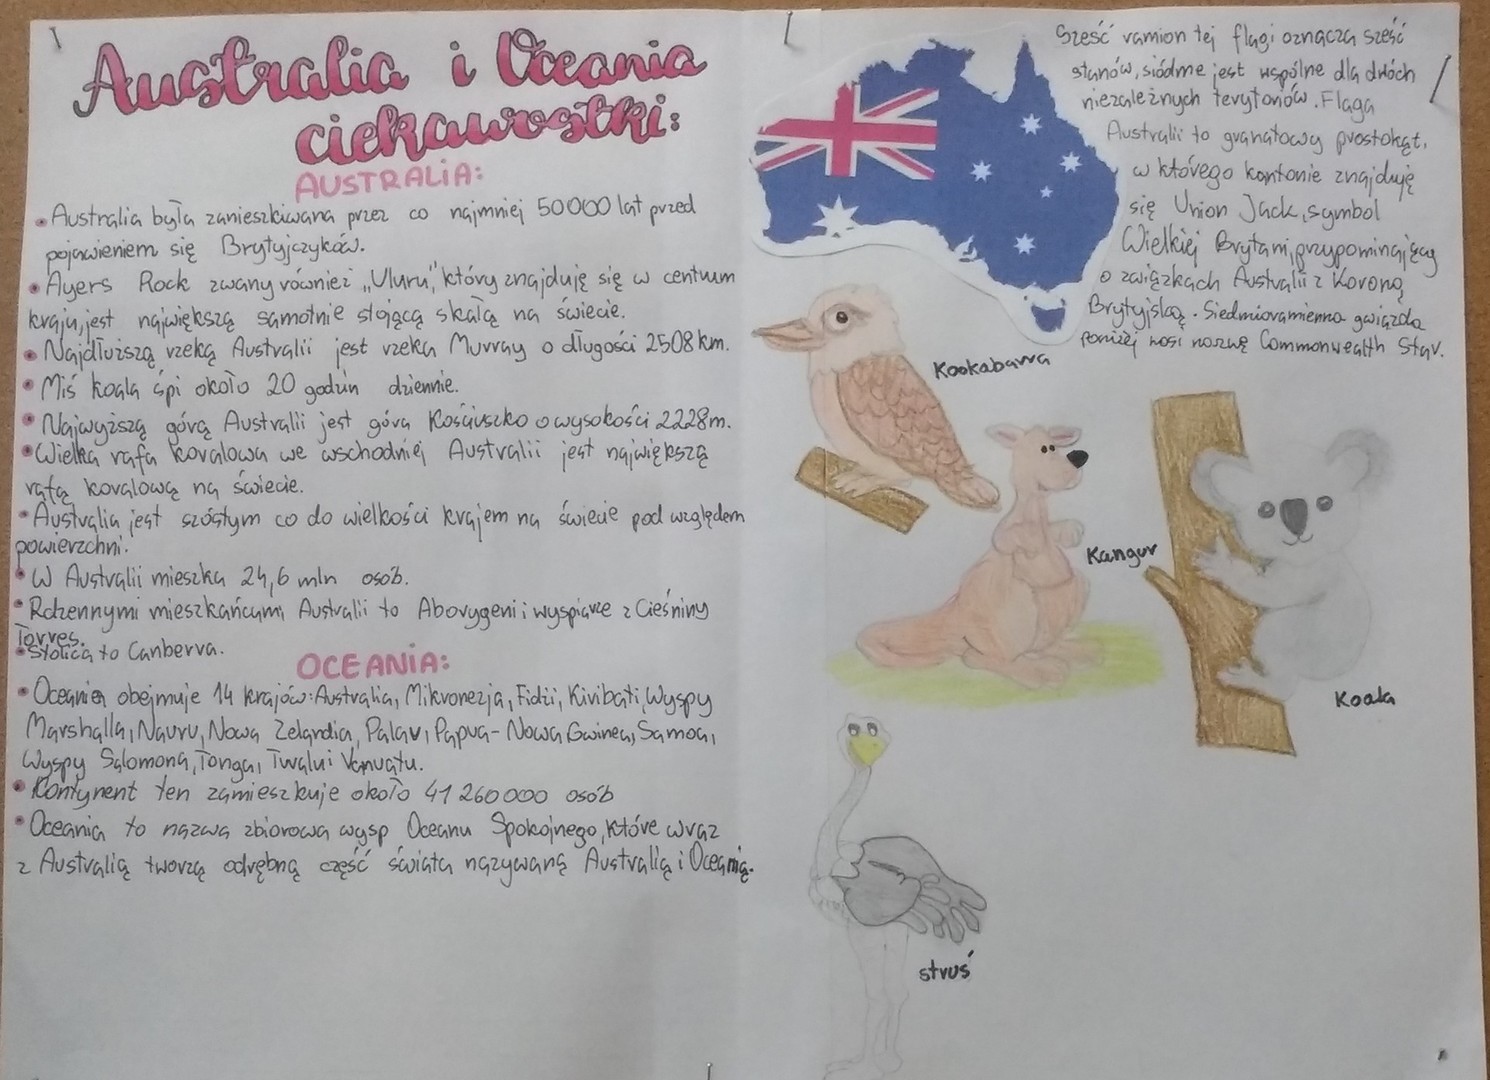 Australia i Oceania
ciekawostki:
AUSTRALIA:
• Australia była zanieszkiwana przez co najmniej 50000 lat przed
pojawieniem się Brytyjczyków.
• Ayers Rock zwany również „Uluru", który znajduję się w centrum
kraju, jest największą samotnie stojącą skałą na świecie.
• Najdłuższą rzeką Australii jest rzeka Murray o długości 2508 km.
• Miś koala śpi około 20 godzin dziennie.
• Najwyższą górą Australii jest góra Kościuszko o wysokości 2228m.
• Wielka rafa koralowa we wschodniej Australii jest największą
rafą koralową na świecie.
• Australia jest szóstym co do wielkości krajem na świecie pod względem
powierzchni.
• W Australii mieszka 24,6 mln osób.
• Rdzennymi mieszkańcami Australii to Aborygeni i wyspiarze z Cieśniny
Torres.
• Stolica to Canberra.
OCEANIA:
• Oceania obejmuje 14 krajów: Australia, Mikronezja, Fidżi, Kiribati, Wyspy
Marshalla, Nauru, Nowa Zelandia, Palau, Papua-Nowa Gwinea, Samoa,
Wyspy Salomona, Tonga, Tuvalu i Vanuatu.
• Kontynent ten zamieszkuje około 41 260 000 osób
• Oceania to nazwa zbiorowa wysp Oceanu Spokojnego, które wraz
z Australią tworzą odrębną część świata nazywaną Australią i Oceanią.
Sześć ramion tej flagi oznacza sześć
stanów, siódme jest wspólne dla dwóch
niezależnych terytoriów. Flaga
Australii to granatowy prostokąt,
w którego kantonie znajduję
się Union Jack, symbol
Wielkiej Brytani, przypominający
o związkach Australii z Koroną
Brytyjską. Siedmioramienna gwiazda
poniżej nosi nazwę Commonwealth Star.
Kookabarra
Kangur
Koala
struś